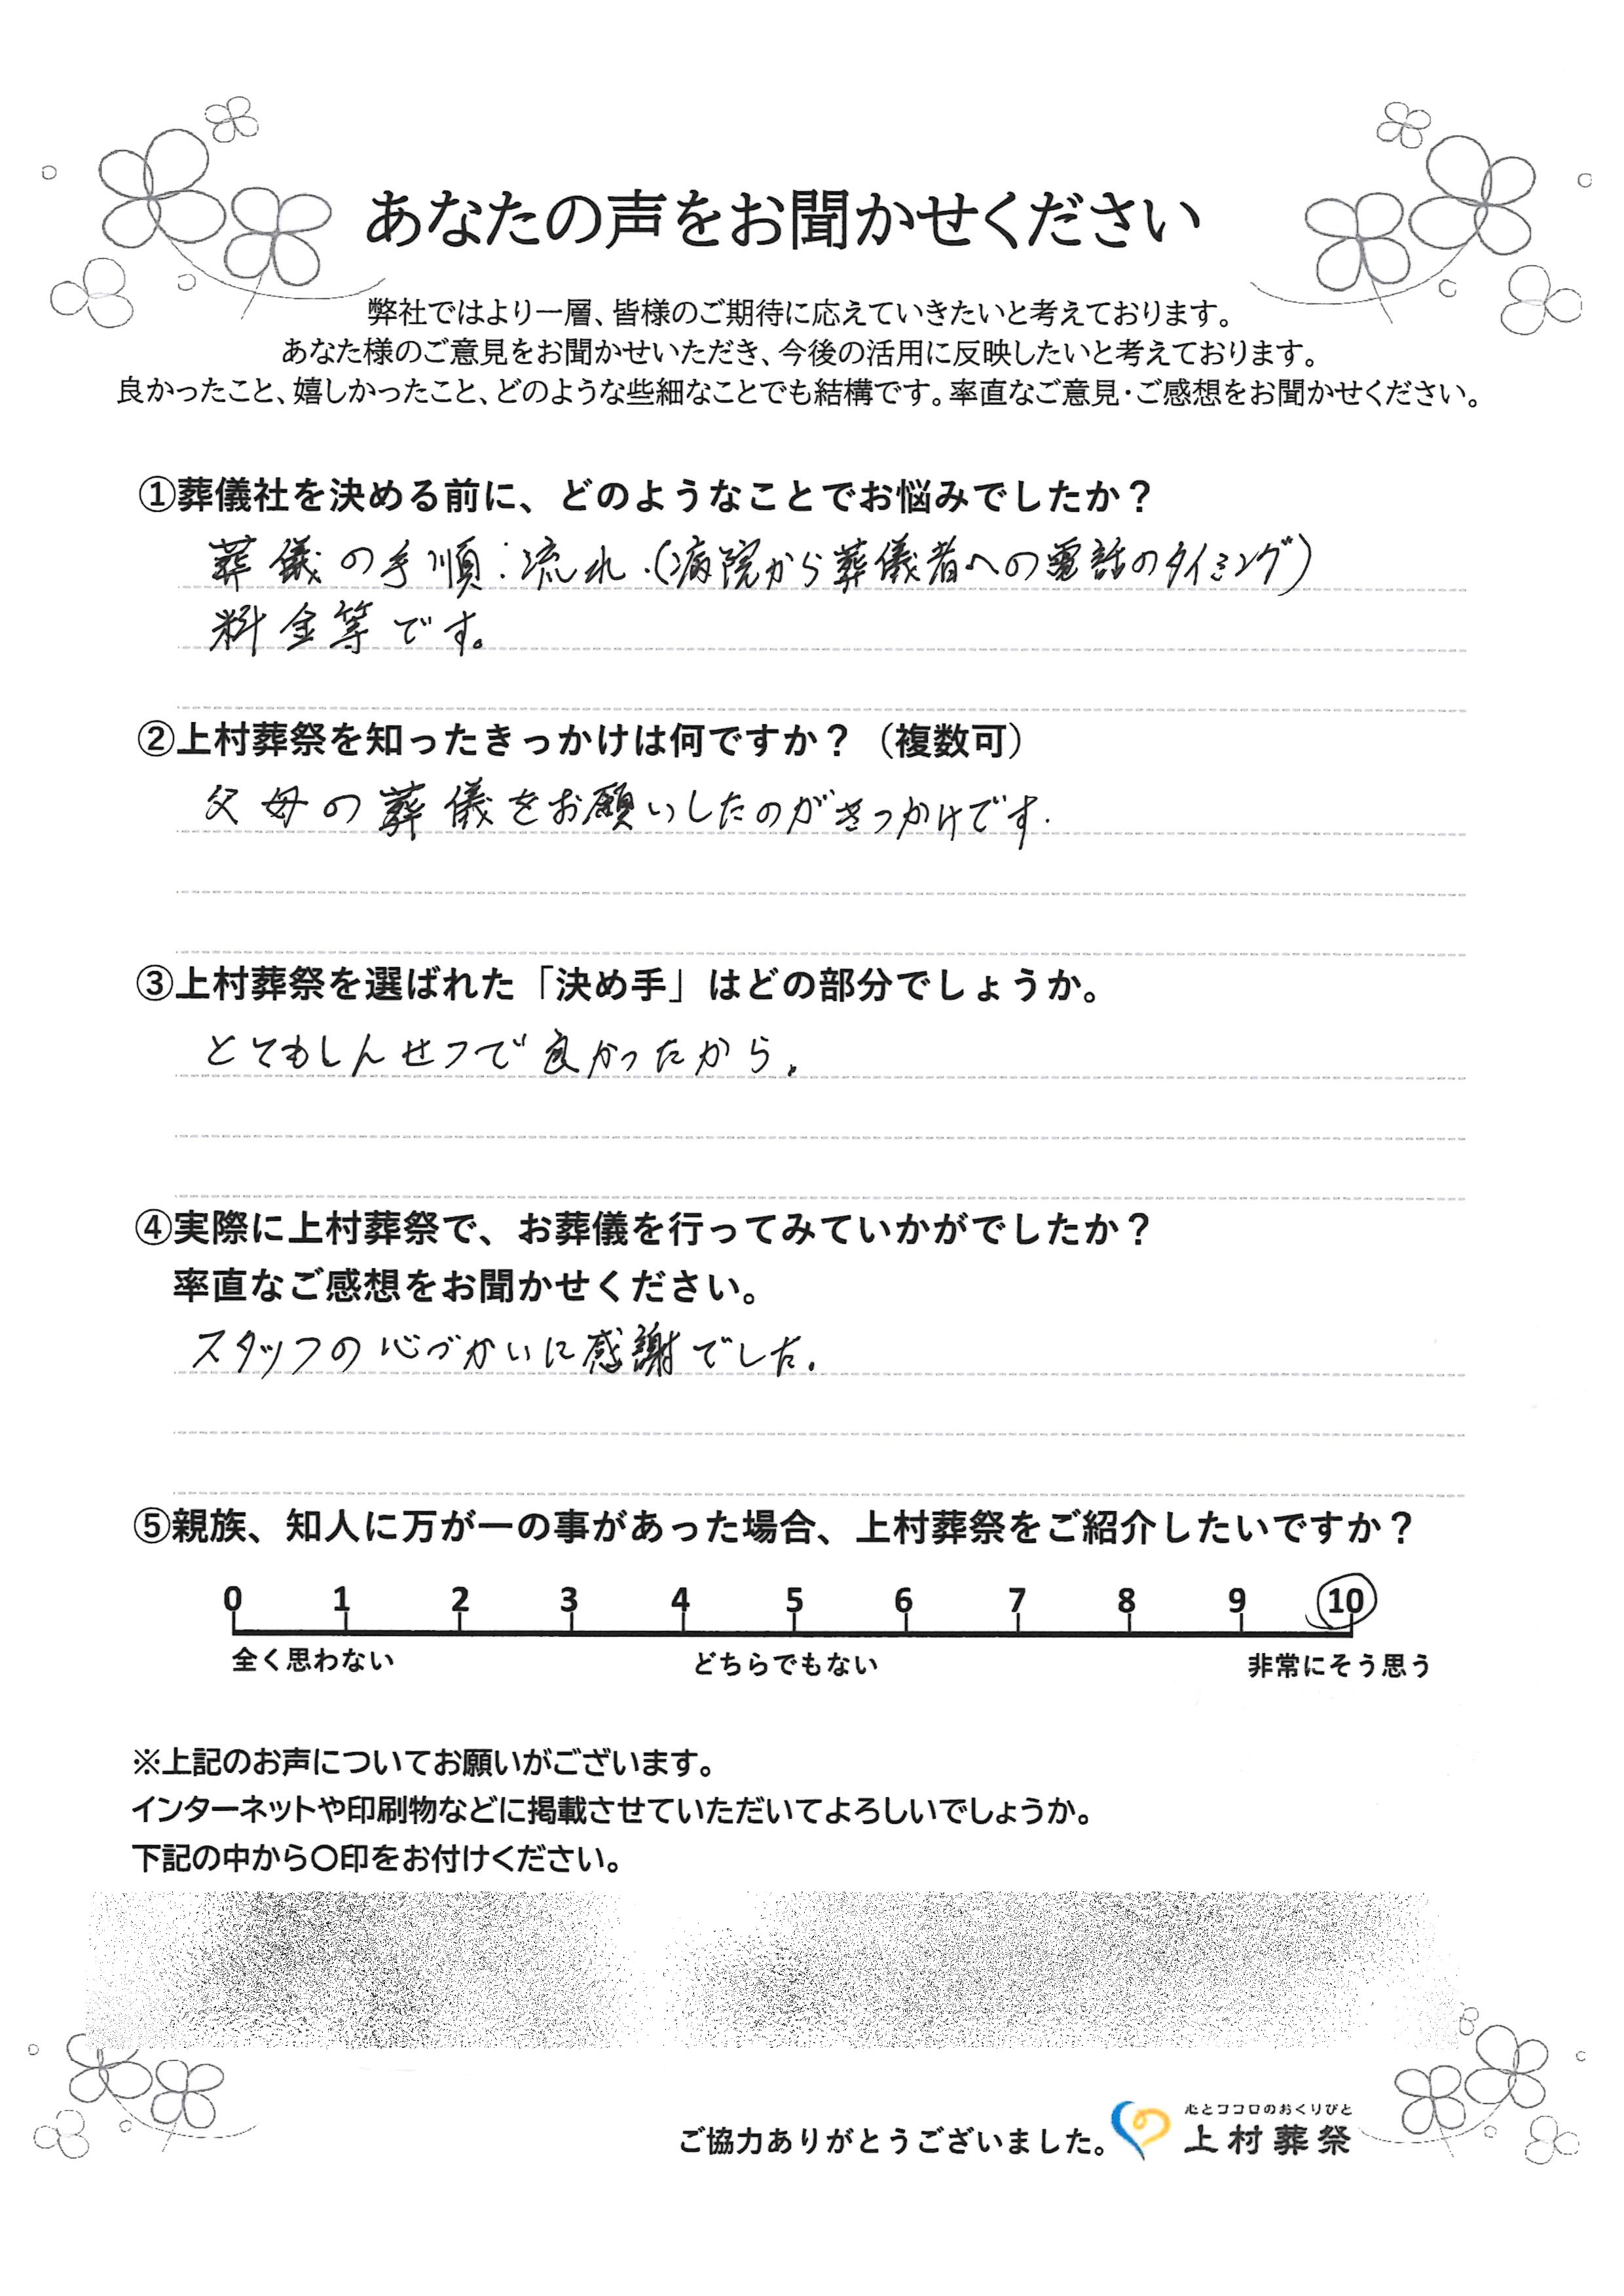 あなたの声をお聞かせください
弊社ではより一層、皆様のご期待に応えていきたいと考えております。
あなた様のご意見をお聞かせいただき、今後の活用に反映したいと考えております。
良かったこと、嬉しかったこと、どのような些細なことでも結構です。率直なご意見・ご感想をお聞かせください。
①葬儀社を決める前に、どのようなことでお悩みでしたか？
葬儀の手順:流れ.(病院から葬儀者への電話のタイミング)
料金等です。
②上村葬祭を知ったきっかけは何ですか？（複数可）
父母の葬儀をお願いしたのがきっかけです.
③上村葬祭を選ばれた「決め手」はどの部分でしょうか。
とてもしんせつで良かったから。
④実際に上村葬祭で、お葬儀を行ってみていかがでしたか？
率直なご感想をお聞かせください。
スタッフの心づかいに感謝でした.
⑤親族、知人に万が一の事があった場合、上村葬祭をご紹介したいですか？
0 1 2 3 4 5 6 7 8 9 10
全く思わない どちらでもない 非常にそう思う
※上記のお声についてお願いがございます。
インターネットや印刷物などに掲載させていただいてよろしいでしょうか。
下記の中から〇印をお付けください。
心とココロのおくりびと
ご協力ありがとうございました。 上村葬祭